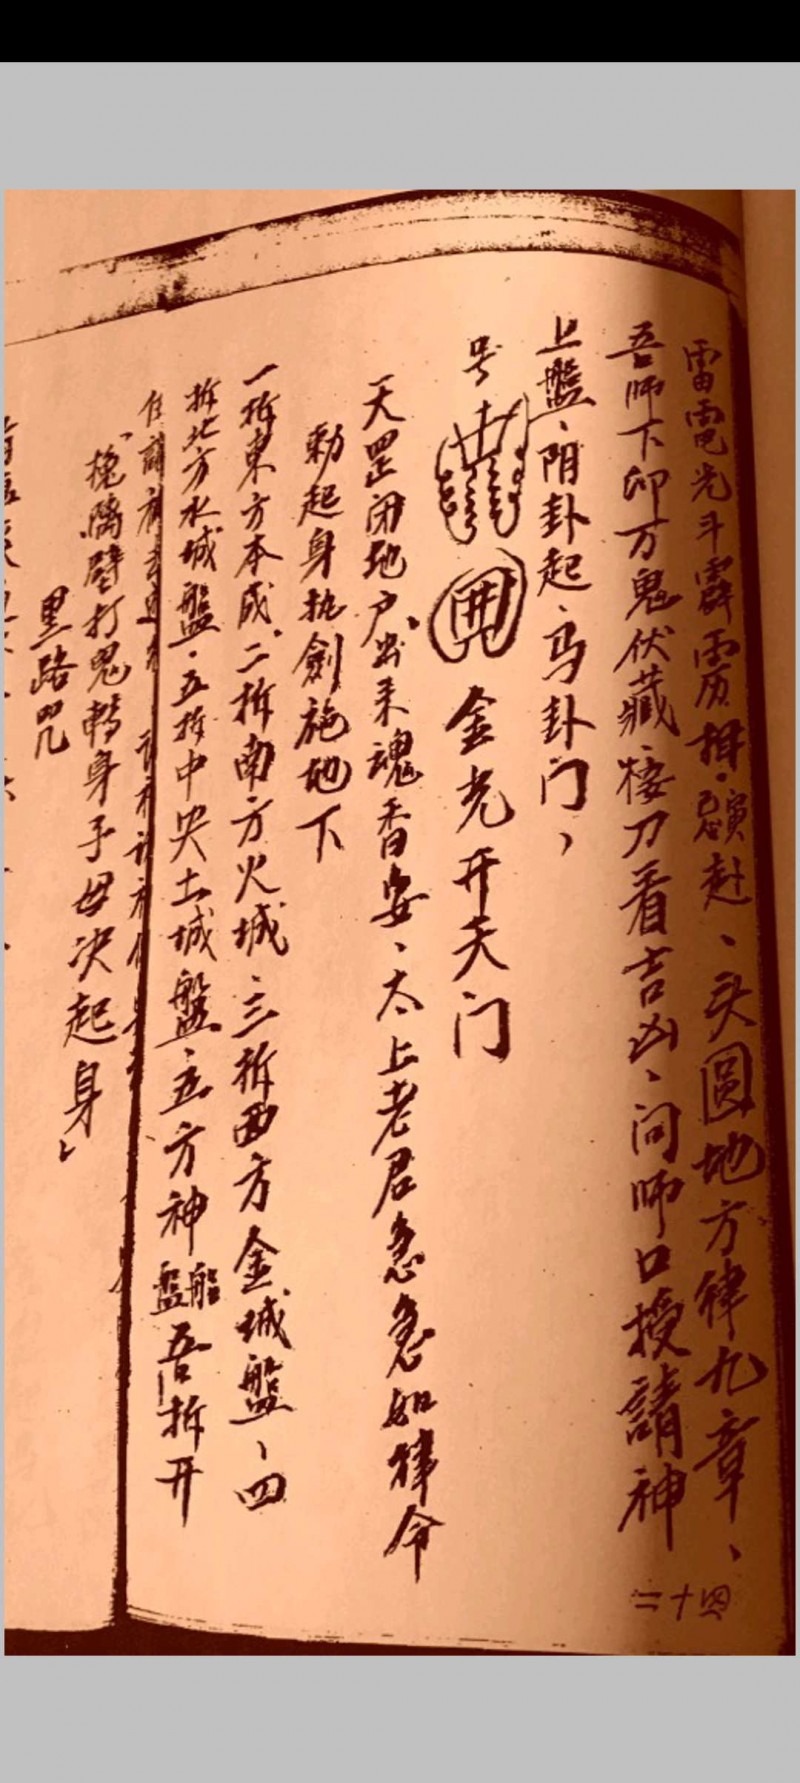 雷電光斗霹雳揖·頭赴、头圆地方律九章、
吾师下卬万鬼伏藏 刀看吉凶、问师口授請神
上盤、阴卦起、为卦门、
号 金光开天门
天罡闭地户出来魂香安、太上老君急急如律令
勅起身执劍施地下
一拆東方本成、二拆南方火城、三拆西方金城盤、四
拆北方水城盤、五拆中央土城盤、五方神盤吾拆开
二十四
槐隔壁打鬼轉身子母决起身
里路咒